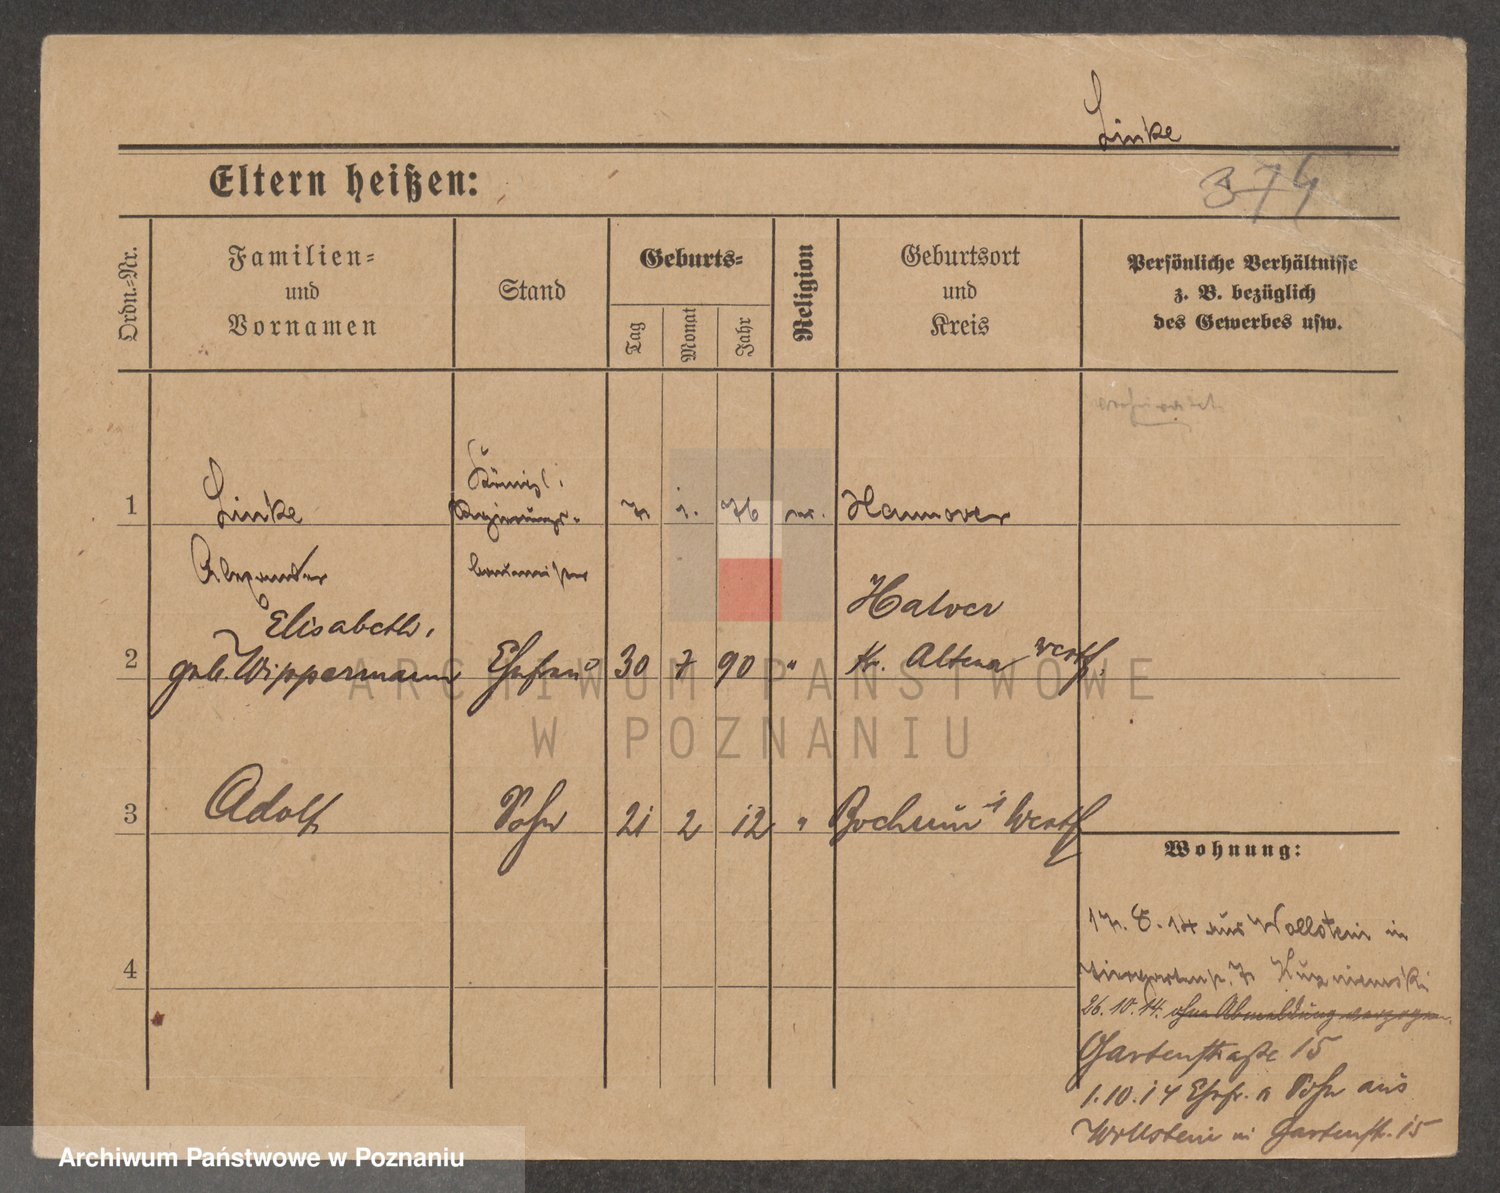 Linke
Eltern heißen:
374
Ordn.-Nr.
Familien-
und
Vornamen
Stand
Geburts-
Tag
Monat
Jahr
Religion
Geburtsort
und
Kreis
Persönliche Verhältnisse
z. B. bezüglich
des Gewerbes usw.
Königl.
1 Linke Regierungs- 7. 1. 76 ev. Hannover
Alexander baumeister
Elisabeth, Halver
2 geb. Wippermann Ehefrau 30 7 90 " Kr. Altena Westf.
3 Adolf Sohn 21 2 12 " Bochum i Westf
Wohnung:
17. 8. 14 aus Wollstein in
Tiergartenstr. 7
4
26. 10. 14. ohne Abmeldung verzogen.
Gartenstraße 15
1. 10. 14 Ehefr. u Sohn aus
Wollstein in Gartenstr. 15
ARCHIWUM PAŃSTWOWE
W POZNANIU
Archiwum Państwowe w Poznaniu